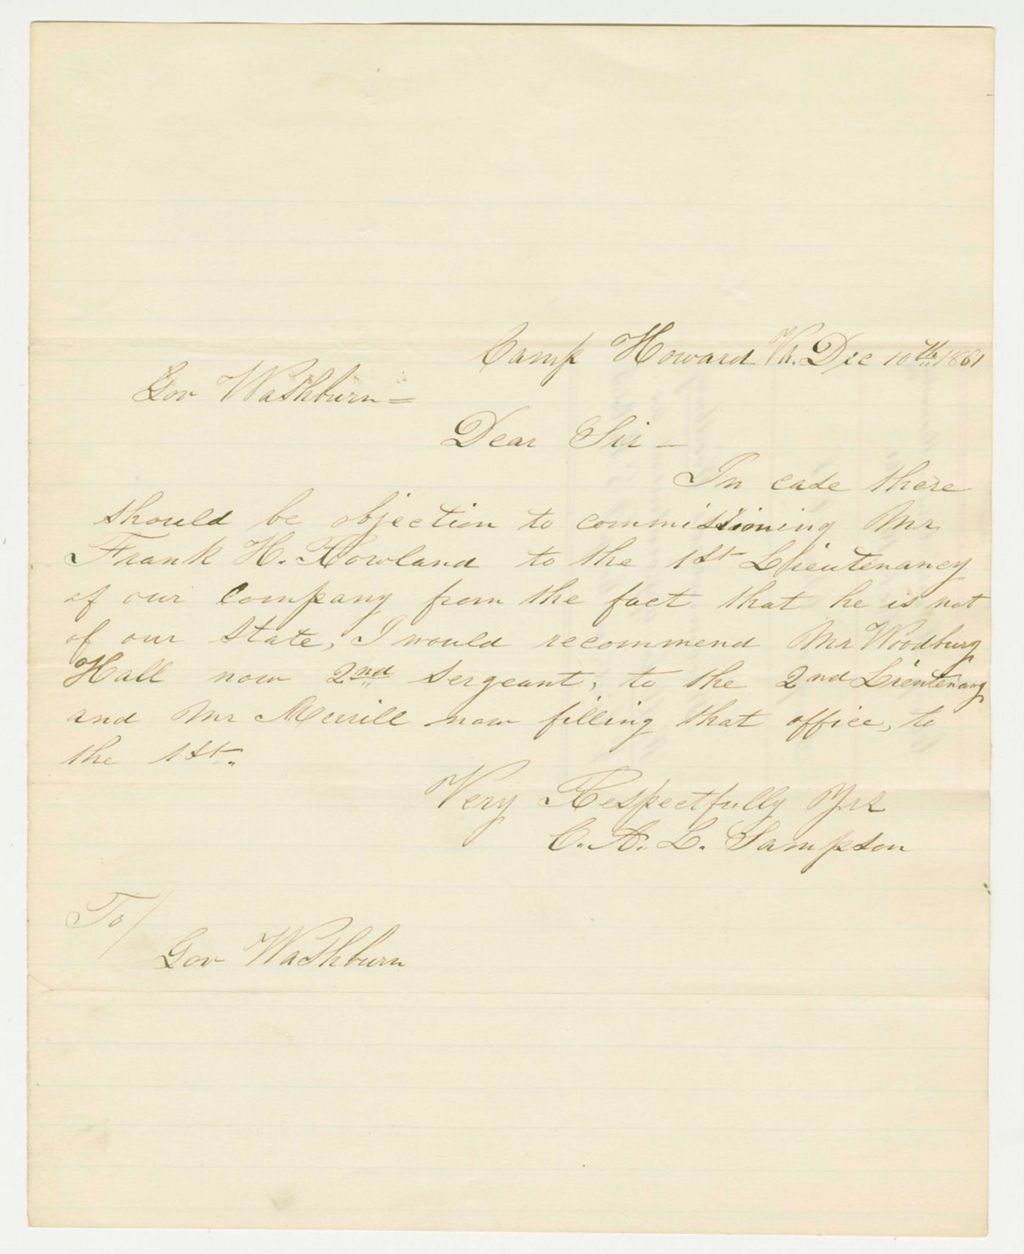 Camp Howard Va. Dec 10th 1861
Gov Washburn =
Dear Sir —
In case there
should be objection to commissioning Mr
Frank H. Rowland to the 1st Lieutenancy
of our Company from the fact that he is not
of our State, I would recommend Mr Woodbury
Hall now 2nd Sergeant, to the 2nd Lieutenancy
and Mr Merrill now filling that office, to
the 1st.
Very Respectfully Yrs
C. A. L. Sampson
To/
Gov Washburn